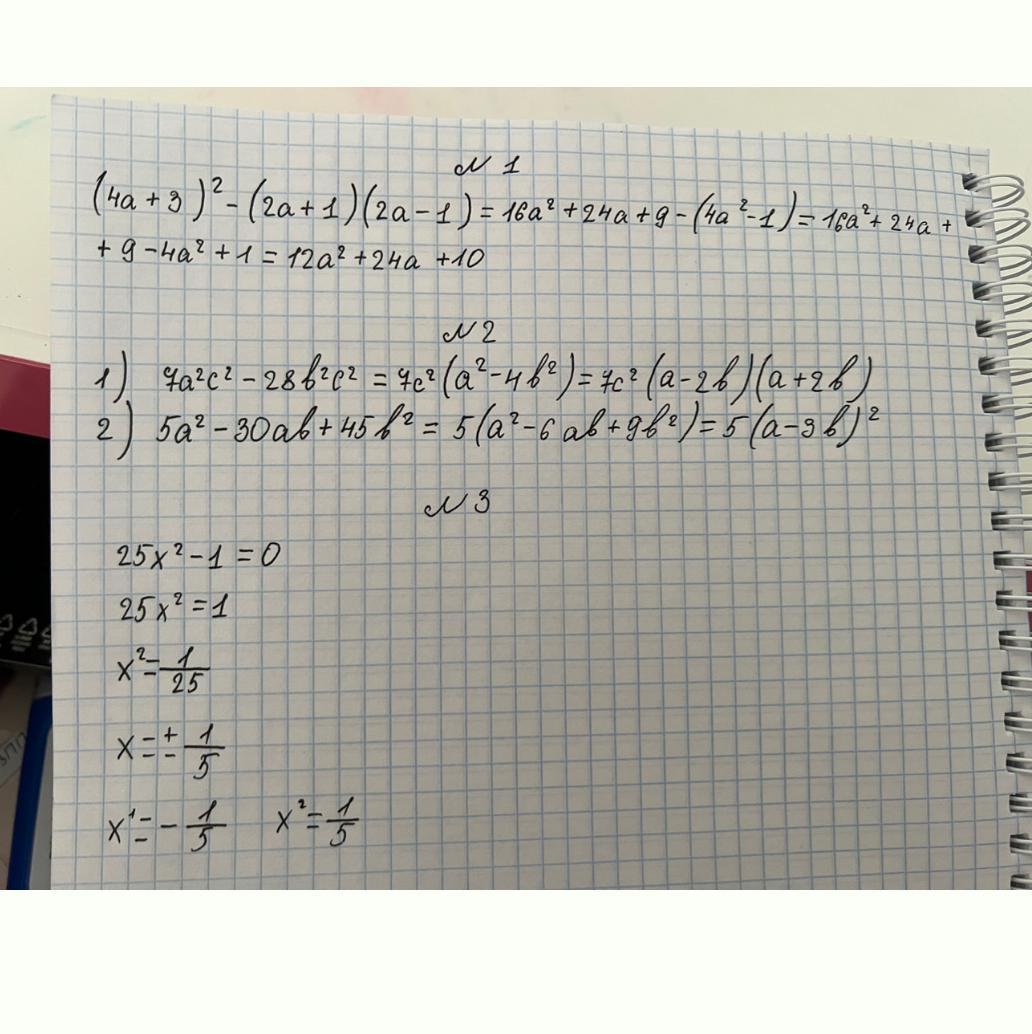 № 1
(4a + 3)² - (2a + 1)(2a - 1) = 16a² + 24a + 9 - (4a² - 1) = 16a² + 24a +
+ 9 - 4a² + 1 = 12a² + 24a + 10
№ 2
1) 7a²c² - 28b²c² = 7c²(a² - 4b²) = 7c²(a - 2b)(a + 2b)
2) 5a² - 30ab + 45b² = 5(a² - 6ab + 9b²) = 5(a - 3b)²
№ 3
25x² - 1 = 0
25x² = 1
x² = 1/25
x = ± 1/5
x¹ = - 1/5 x² = 1/5